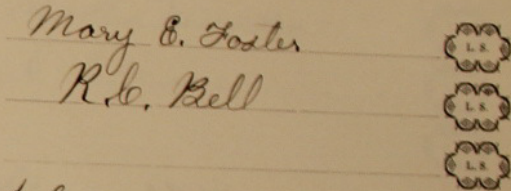 Mary E. Foster L. S.
R. C. Bell L. S.
L. S.